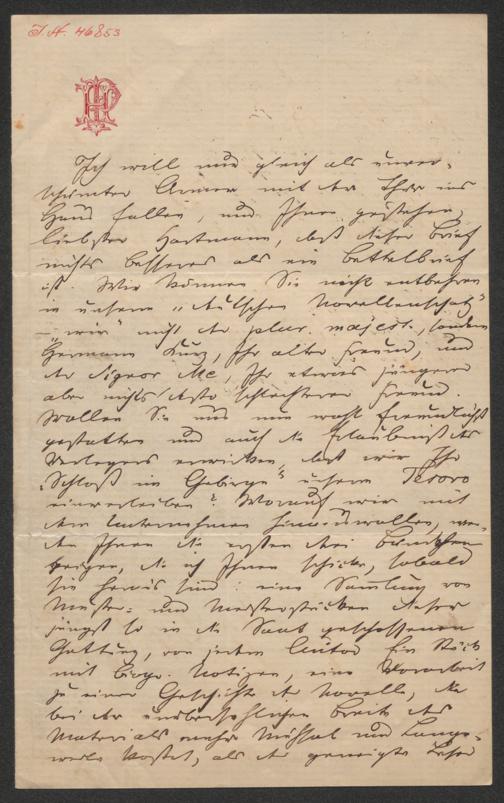 I. N. 46853
PH
Ich will nur gleich als unver-
schämter Armer mit der Thür ins
Haus fallen, und Ihnen gestehen,
liebster Hartmann, daß dieser Brief
nichts besseres als ein Bettelbrief
ist. Wir können Sie nicht entbehren
in unserm "deutschen Novellenschatz"
– "wir" nicht der plur. majest., sondern
Hermann Kurz, Ihr alter Freund, und
der Signor Me, Ihr etwas jüngerer
aber nichts desto schlechterer Freund.
Wollen Sie uns nun wohl freundlichst
gestatten und auch die Erlaubniß des
Verlegers erwirken, daß wir Ihr
"Schloß im Gebirge" unserm Tesoro
einverleiben? Worauf wir mit
dem Unternehmen hinauswollen, wer-
den Ihnen die ersten drei Bändchen
zeigen, die ich Ihnen schicke, sobald
sie heraus sind: eine Sammlung von
Muster- und Meisterstücken dieser
jüngst so in die Saat geschossenen
Gattung, von jedem Autor Ein Stück
mit biogr. Notizen, eine Vorarbeit
zu einer Geschichte der Novelle, die
bei der unübersehlichen Breite des
Materials mehr Mühsal und Lange-
weile kostet, als der geneigte Leser